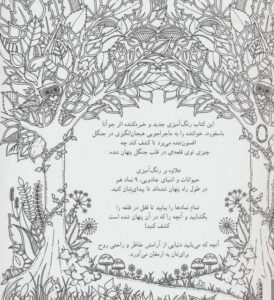 این کتاب رنگ‌آمیزی جدید و خیره‌کننده اثر جوآنا
باسفورد، خواننده را به ماجراجویی هیجان‌انگیزی در جنگل
افسون‌شده‌ی می‌برد تا کشف کند چه
چیزی توی قلعه‌ای در قلب جنگل پنهان شده.
علاوه بر رنگ‌آمیزی
حیوانات و اشیای جادویی، ۹ نماد هم
در طول راه پنهان شده‌اند تا پیدای‌شان کنید.
تمام نمادها را بیابید تا قفل در قلعه را
بگشایید و آنچه را که در آن پنهان شده است
کشف کنید!
آنچه که می‌یابید دنیایی از آرامش خاطر و راحتی روح
برای‌تان به ارمغان می‌آورد.